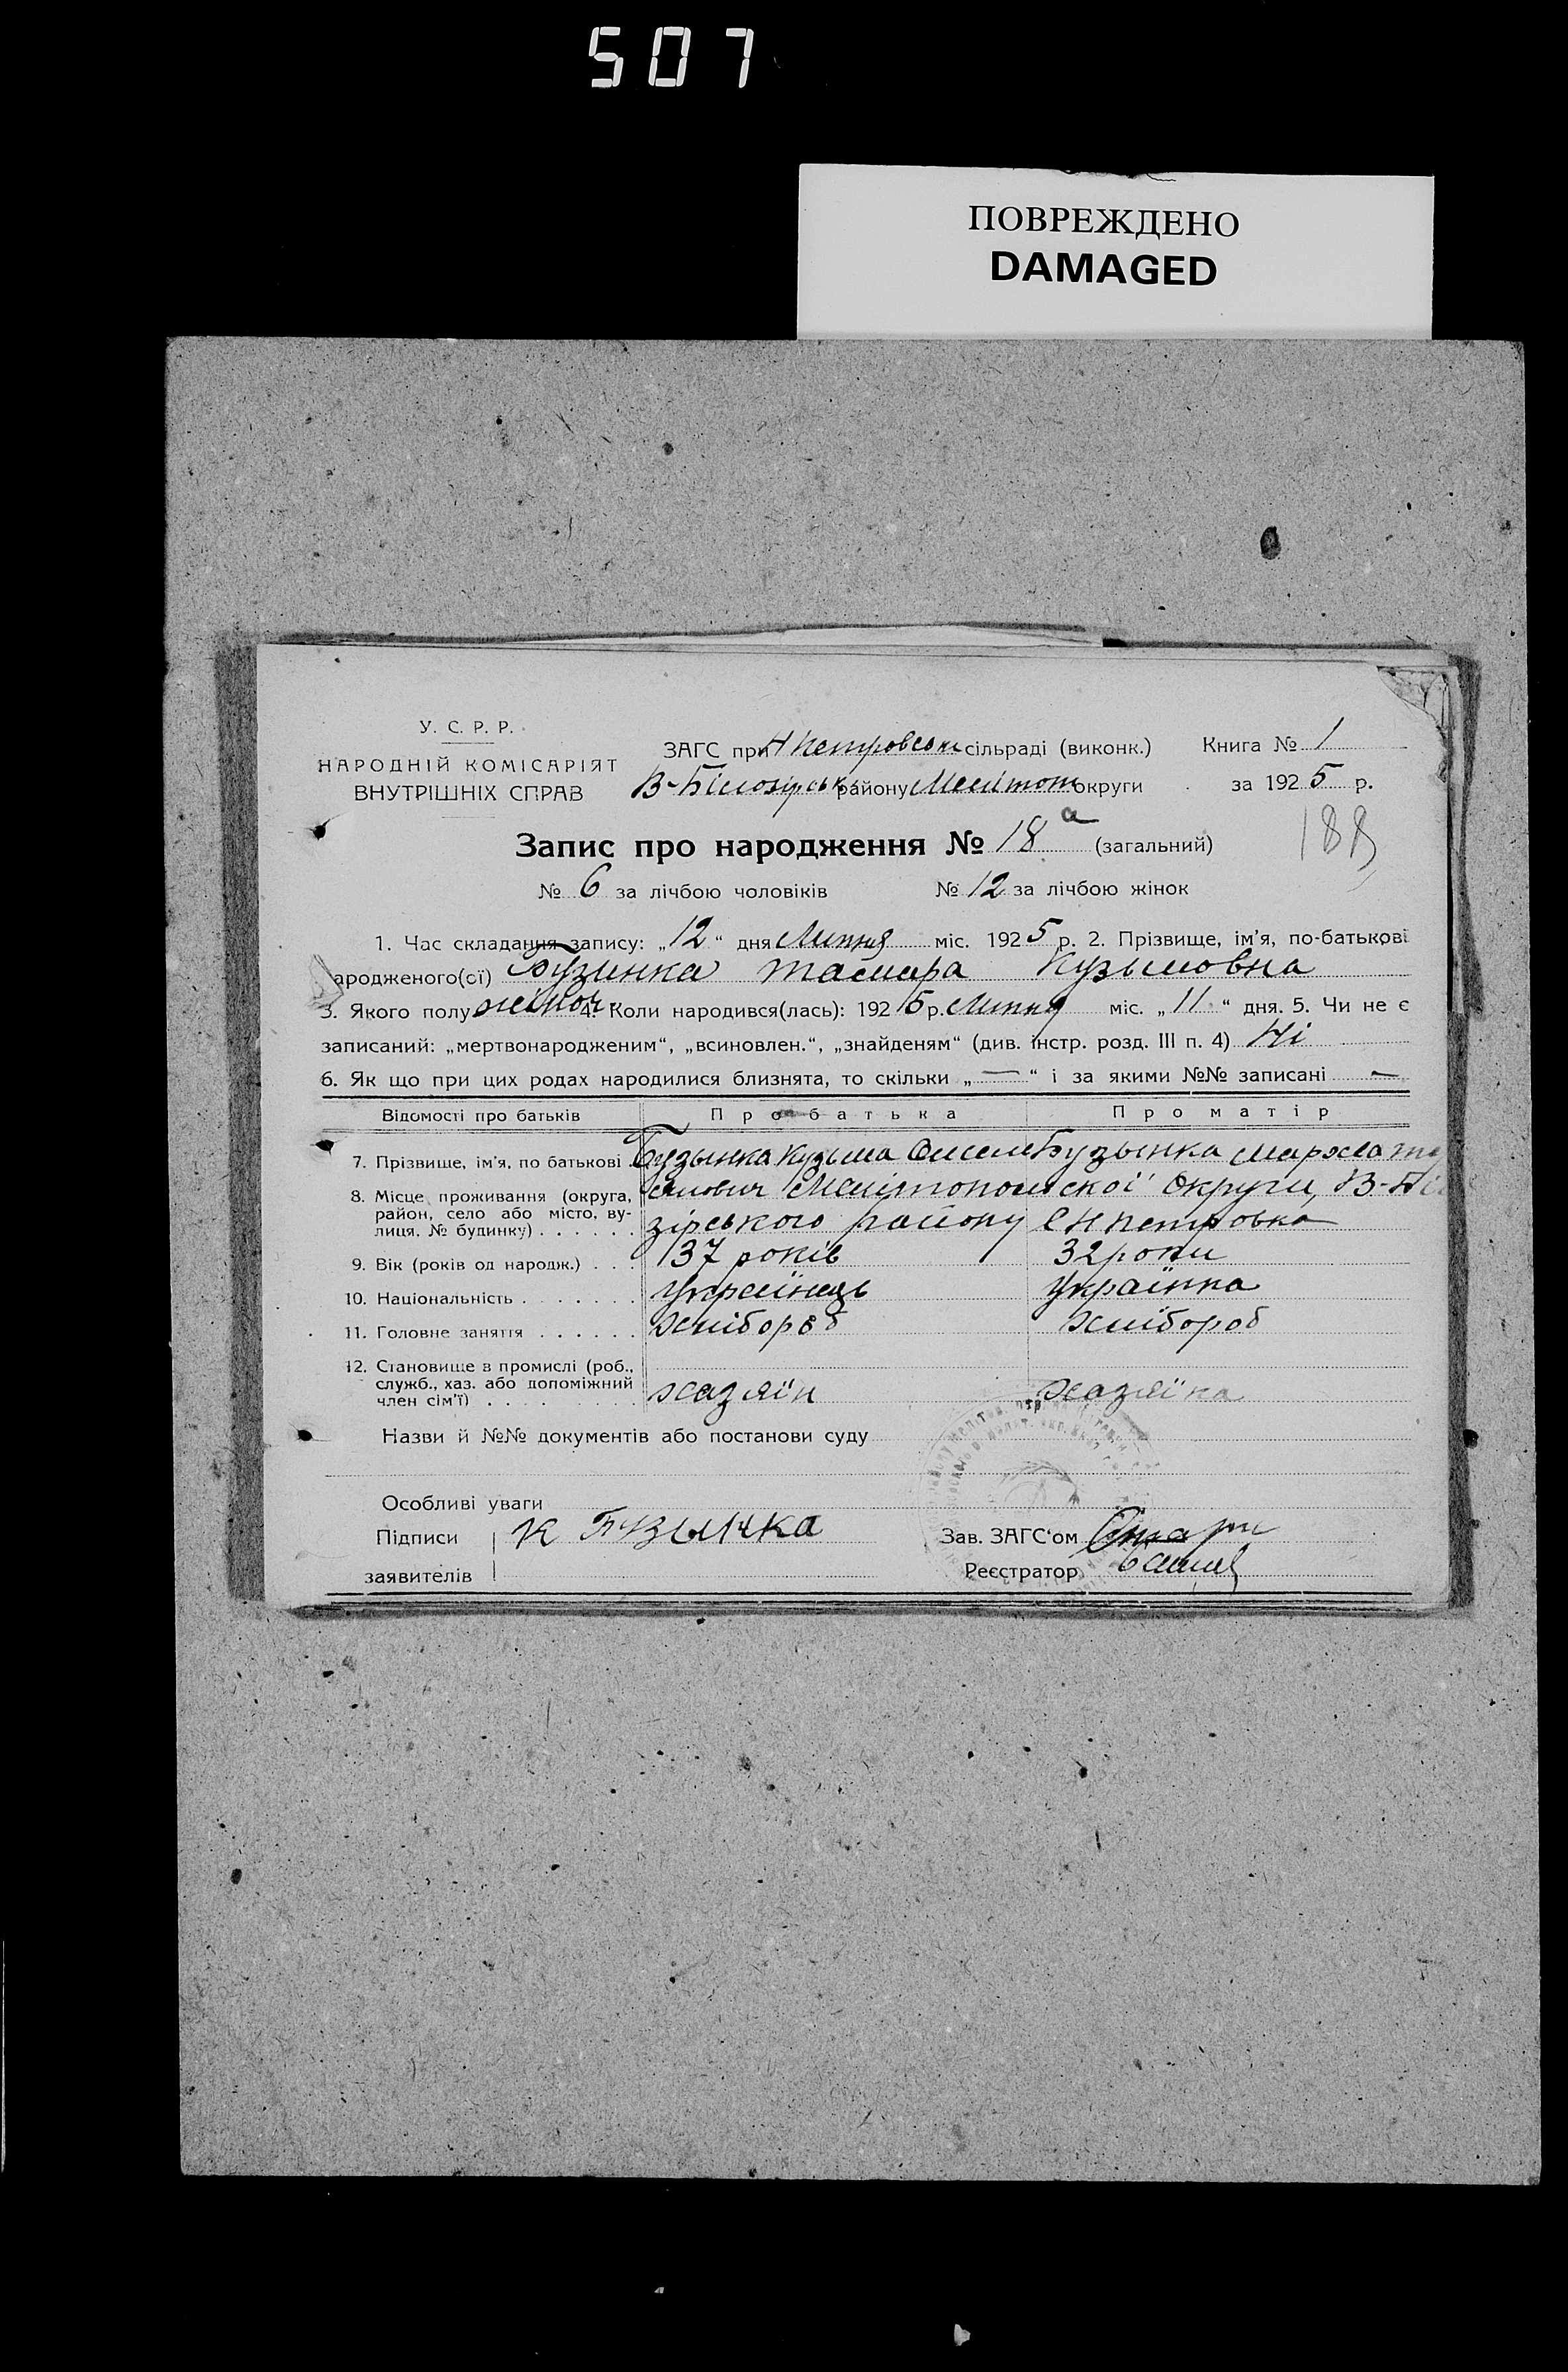 507
ПОВРЕЖДЕНО
DAMAGED
У. С. Р. Р.
НАРОДНІЙ КОМІСАРІЯТ
ВНУТРІШНІХ СПРАВ
ЗАГС при Нпетровськ сільраді (виконк.) Книга № 1
В-Білозірськ району Мелітоп округи за 1925 р.
188
Запис про народження № 18 а (загальний)
№ 6 за лічбою чоловіків № 12 за лічбою жінок
1. Час складання запису: „12“ дня Липня міс. 1925 р. 2. Прізвище, ім'я, по-батькові
ародженого(ої) Бузинка Тамара Кузьмовна
3. Якого полу жіноч. 4. Коли народився(лась): 1925 р. Липня міс. „11“ дня. 5. Чи не є
записаний: „мертвонародженим“, „всиновлен.“, „знайденям“ (див. інстр. розд. III п. 4) Ні
6. Як що при цих родах народилися близнята, то скільки „—“ і за якими №№ записані —
Відомості про батьків Про батька Про матір
7. Прізвище, ім'я, по батькові Бузынка Кузьма Бузынка
8. Місце проживання (округа, Мелітопольскої Округи, В-Бі
район, село або місто, ву-
лиця, № будинку) . . . . . . зірського району с Нпетровка
9. Вік (років од народж.) . . . 37 років 32 роки
10. Національність . . . . . . . Українець Українка
11. Головне заняття . . . . . . хлібороб хлібороб
12. Становище в промислі (роб.,
служб., хаз. або допоміжний
член сім'ї) . . . . . . . . . хазяїн хазяїка
Назви й №№ документів або постанови суду
Особливі уваги
Підписи К Бузынка Зав. ЗАГС'ом
заявителів Реєстратор